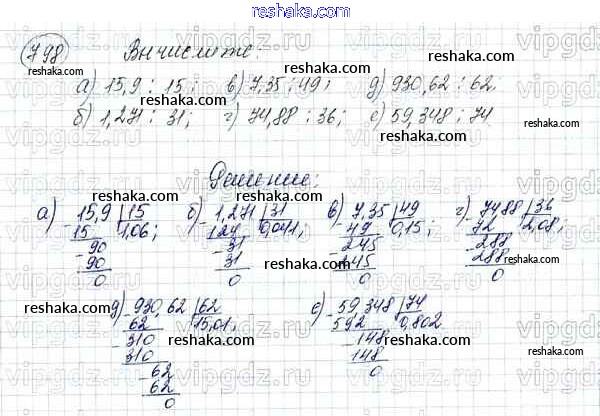 reshaka.com
798 Вычислите:
а) 15,9 : 15; в) 7,35 : 49; д) 930,62 : 62
б) 1,271 : 31; г) 74,88 : 36; е) 59,348 : 74
Решение:
а) 15,9 | 15 б) 1,271 | 31 в) 7,35 | 49 г) 7488 | 36
- 15 1,06; - 124 0,041; - 49 0,15; - 72 2,08;
- 90 - 31 - 245 - 288
90 31 245 288
0 0 0 0
д) 930,62 | 62 е) 59,348 | 74
- 62 15,01; - 592 0,802
- 310 - 148
310 148
- 62 0
62
0